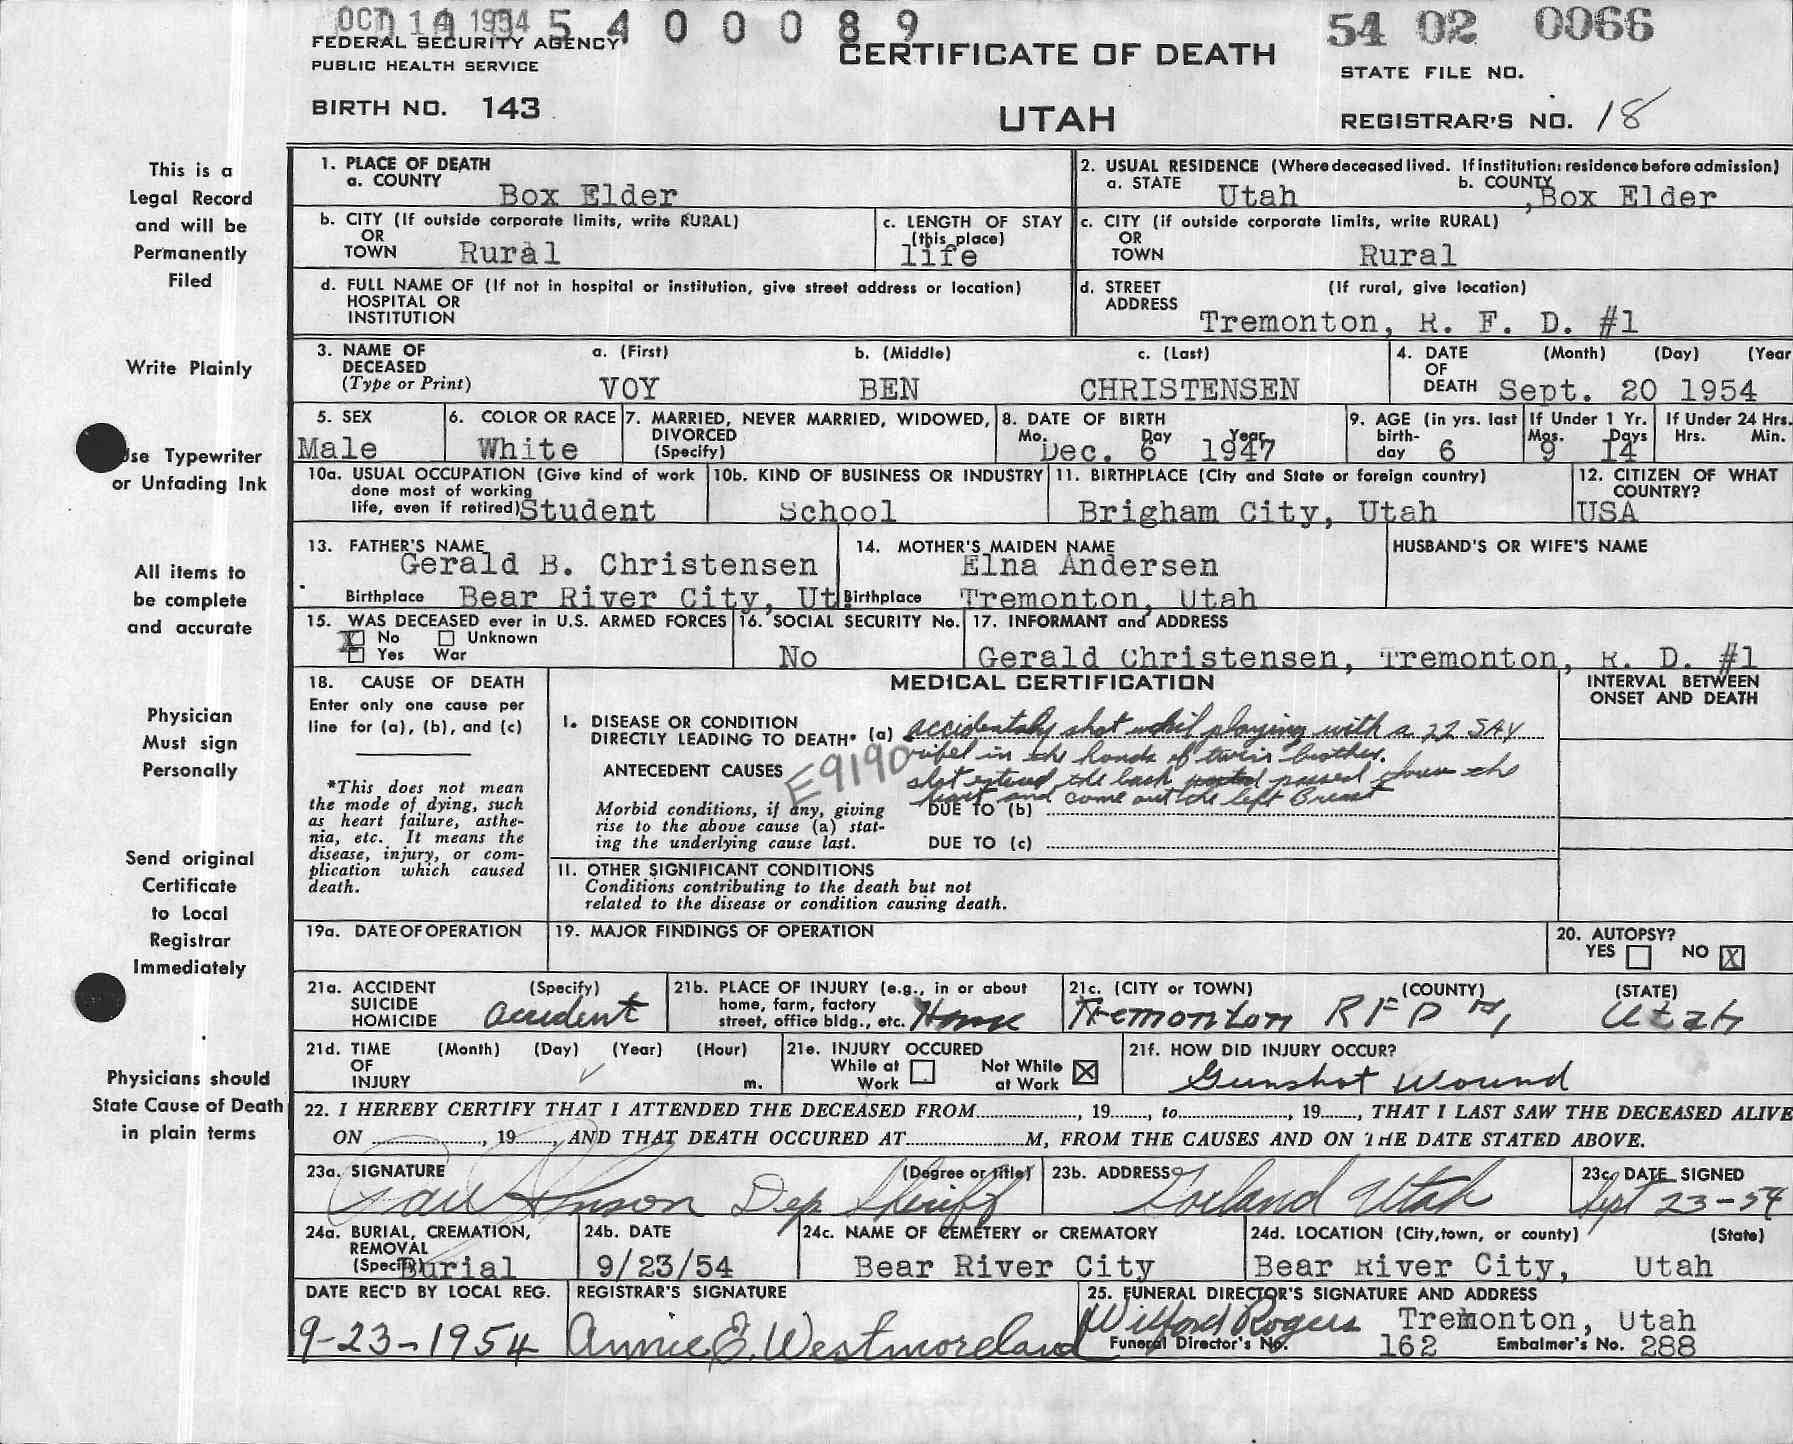 OCT 14 1954 5 4 0 0 0 8 9
54 02 0066
FEDERAL SECURITY AGENCY
PUBLIC HEALTH SERVICE
CERTIFICATE OF DEATH
STATE FILE NO.
BIRTH NO. 143
UTAH
REGISTRAR'S NO. 18
This is a
Legal Record
and will be
Permanently
Filed
Write Plainly
Use Typewriter
or Unfading Ink
All items to
be complete
and accurate
Physician
Must sign
Personally
Send original
Certificate
to Local
Registrar
Immediately
Physicians should
State Cause of Death
in plain terms
1. PLACE OF DEATH
a. COUNTY Box Elder
2. USUAL RESIDENCE (Where deceased lived. If institution: residence before admission)
a. STATE Utah b. COUNTY, Box Elder
b. CITY (If outside corporate limits, write RURAL)
OR
TOWN Rural
c. LENGTH OF STAY
(this place)
life
c. CITY (if outside corporate limits, write RURAL)
OR
TOWN Rural
d. FULL NAME OF (If not in hospital or institution, give street address or location)
HOSPITAL OR
INSTITUTION
d. STREET (If rural, give location)
ADDRESS
Tremonton, R. F. D. #1
3. NAME OF a. (First) b. (Middle) c. (Last)
DECEASED
(Type or Print) VOY BEN CHRISTENSEN
4. DATE (Month) (Day) (Year
OF
DEATH Sept. 20 1954
5. SEX
Male
6. COLOR OR RACE
White
7. MARRIED, NEVER MARRIED, WIDOWED,
DIVORCED
(Specify)
8. DATE OF BIRTH
Mo. Day Year
Dec. 6 1947
9. AGE (in yrs. last
birth-
day 6
If Under 1 Yr.
Mos. Days
9 14
If Under 24 Hrs.
Hrs. Min.
10a. USUAL OCCUPATION (Give kind of work
done most of working
life, even if retired) Student
10b. KIND OF BUSINESS OR INDUSTRY
School
11. BIRTHPLACE (City and State or foreign country)
Brigham City, Utah
12. CITIZEN OF WHAT
COUNTRY?
USA
13. FATHER'S NAME
Gerald B. Christensen
Birthplace Bear River City, Ut
14. MOTHER'S MAIDEN NAME
Elna Andersen
Birthplace Tremonton, Utah
HUSBAND'S OR WIFE'S NAME
15. WAS DECEASED ever in U.S. ARMED FORCES
X No Unknown
Yes War
16. SOCIAL SECURITY No.
No
17. INFORMANT and ADDRESS
Gerald Christensen, Tremonton, R. D. #1
18. CAUSE OF DEATH
Enter only one cause per
line for (a), (b), and (c)
*This does not mean
the mode of dying, such
as heart failure, asthe-
nia, etc. It means the
disease, injury, or com-
plication which caused
death.
MEDICAL CERTIFICATION
INTERVAL BETWEEN
ONSET AND DEATH
I. DISEASE OR CONDITION
DIRECTLY LEADING TO DEATH* (a) accidentaly shot whil playing with a 22
rifel in the hands of twin brother.
ANTECEDENT CAUSES E9190 shot entered the back passed the
heart and come out the left Breast
Morbid conditions, if any, giving
rise to the above cause (a) stat-
ing the underlying cause last.
DUE TO (b)
DUE TO (c)
II. OTHER SIGNIFICANT CONDITIONS
Conditions contributing to the death but not
related to the disease or condition causing death.
19a. DATE OF OPERATION
19. MAJOR FINDINGS OF OPERATION
20. AUTOPSY?
YES NO X
21a. ACCIDENT (Specify)
SUICIDE
HOMICIDE accident
21b. PLACE OF INJURY (e.g., in or about
home, farm, factory
street, office bldg., etc. Home
21c. (CITY or TOWN) (COUNTY) (STATE)
Tremonton RFD #1 Utah
21d. TIME (Month) (Day) (Year) (Hour)
OF
INJURY m.
21e. INJURY OCCURED
While at Work Not While at Work X
21f. HOW DID INJURY OCCUR?
Gunshot Wound
22. I HEREBY CERTIFY THAT I ATTENDED THE DECEASED FROM, 19, to, 19, THAT I LAST SAW THE DECEASED ALIVE
ON, 19, AND THAT DEATH OCCURED AT M, FROM THE CAUSES AND ON THE DATE STATED ABOVE.
23a. SIGNATURE (Degree or title)
Johnson Dep Sheriff
23b. ADDRESS
Garland Utah
23c. DATE SIGNED
Sept 23-54
24a. BURIAL, CREMATION,
REMOVAL
(Specify) Burial
24b. DATE
9/23/54
24c. NAME OF CEMETERY or CREMATORY
Bear River City
24d. LOCATION (City, town, or county) (State)
Bear River City, Utah
DATE REC'D BY LOCAL REG.
9-23-1954
REGISTRAR'S SIGNATURE
Annie E. Westmoreland
25. FUNERAL DIRECTOR'S SIGNATURE AND ADDRESS
Wilford Rogers Tremonton, Utah
Funeral Director's No. 162 Embalmer's No. 288